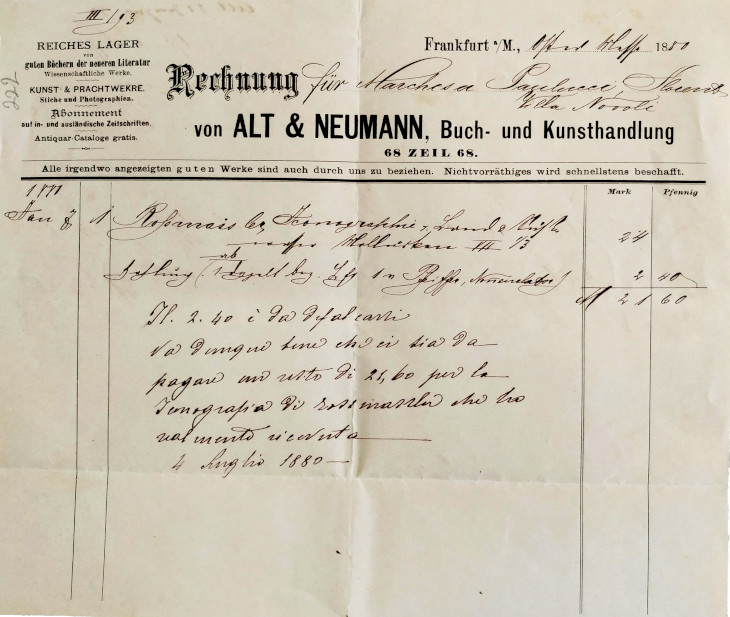 III/93
222
REICHES LAGER
von
guten Büchern der neueren Literatur
Wissenschaftliche Werke.
KUNST- & PRACHTWEKRE.
Stiche und Photographien.
Abonnement
auf in- und ausländische Zeitschriften.
Antiquar-Cataloge gratis.
Frankfurt a/M., Oster Messe 1880
Rechnung für Marchesa Paulucci, Florenz
Villa Novoli
von ALT & NEUMANN, Buch- und Kunsthandlung
68 ZEIL 68.
Alle irgendwo angezeigten guten Werke sind auch durch uns zu beziehen. Nichtvorräthiges wird schnellstens beschafft.
Mark Pfennig
Jan 1 Iconographie Land &
Mollusken VII 24
ab
bez. Pfeiffer, Nomenclator) 2 40
M 21 60
Il. 2.40 è da defalcarsi
Va dunque bene che ci sia da
pagare un resto di 21,60 per la
Iconografia di Rossmassler che ho
realmente ricevuta
4 Luglio 1880